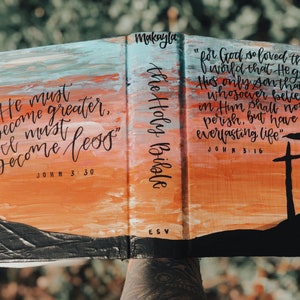 "He must
become greater,
I must
become less"
JOHN 3:30
Makayla
the Holy Bible
ESV
"for God so loved th
world that He g
His only son tha
whosoever belie
in Him shall no
perish, but have
everlasting life"
JOHN 3:16